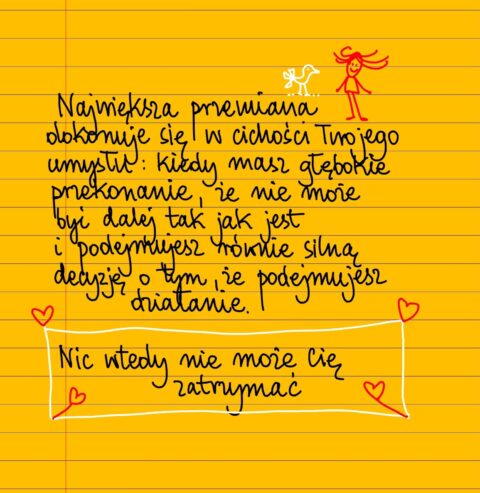 Największa przemiana
dokonuje się w cichości Twojego
umysłu: kiedy masz głębokie
przekonanie, że nie może
być dalej tak jak jest
i podejmujesz równie silną
decyzję o tym, że podejmujesz
działanie.
Nic wtedy nie może Cię
zatrzymać